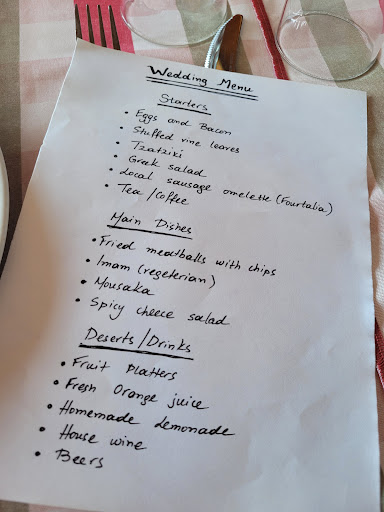 Wedding Menu
Starters
• Eggs and Bacon
• Stuffed vine leaves
• Tzatziki
• Greek salad
• Local sausage omelette (Fourtalia)
• Tea/Coffee
Main Dishes
• Fried meatballs with chips
• Imam (vegeterian)
• Mousaka
• Spicy cheece salad
Deserts/Drinks
• Fruit Platters
• Fresh Orange juice
• Homemade Lemonade
• House wine
• Beers